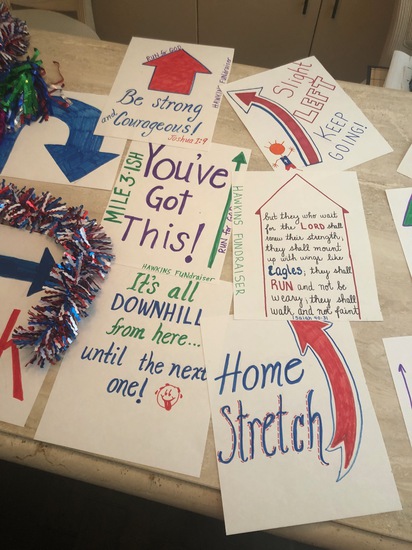 RUN for GOD
Be strong
and Courageous!
Joshua 1:9
HAWKINS FUNDRAISER
Slight
LEFT
KEEP
GOING!
MILE 3-ISH
You've
Got
This!
RUN for
HAWKINS FUNDRAISER
but they who wait
for the LORD shall
renew their strength;
they shall mount
up with wings like
Eagles; they shall
RUN and not be
weary; they shall
walk and not faint
Isaiah 40:31
HAWKINS FUNDraiser
It's all
DOWNHILL
from here...
until the next
one!
Home
Stretch